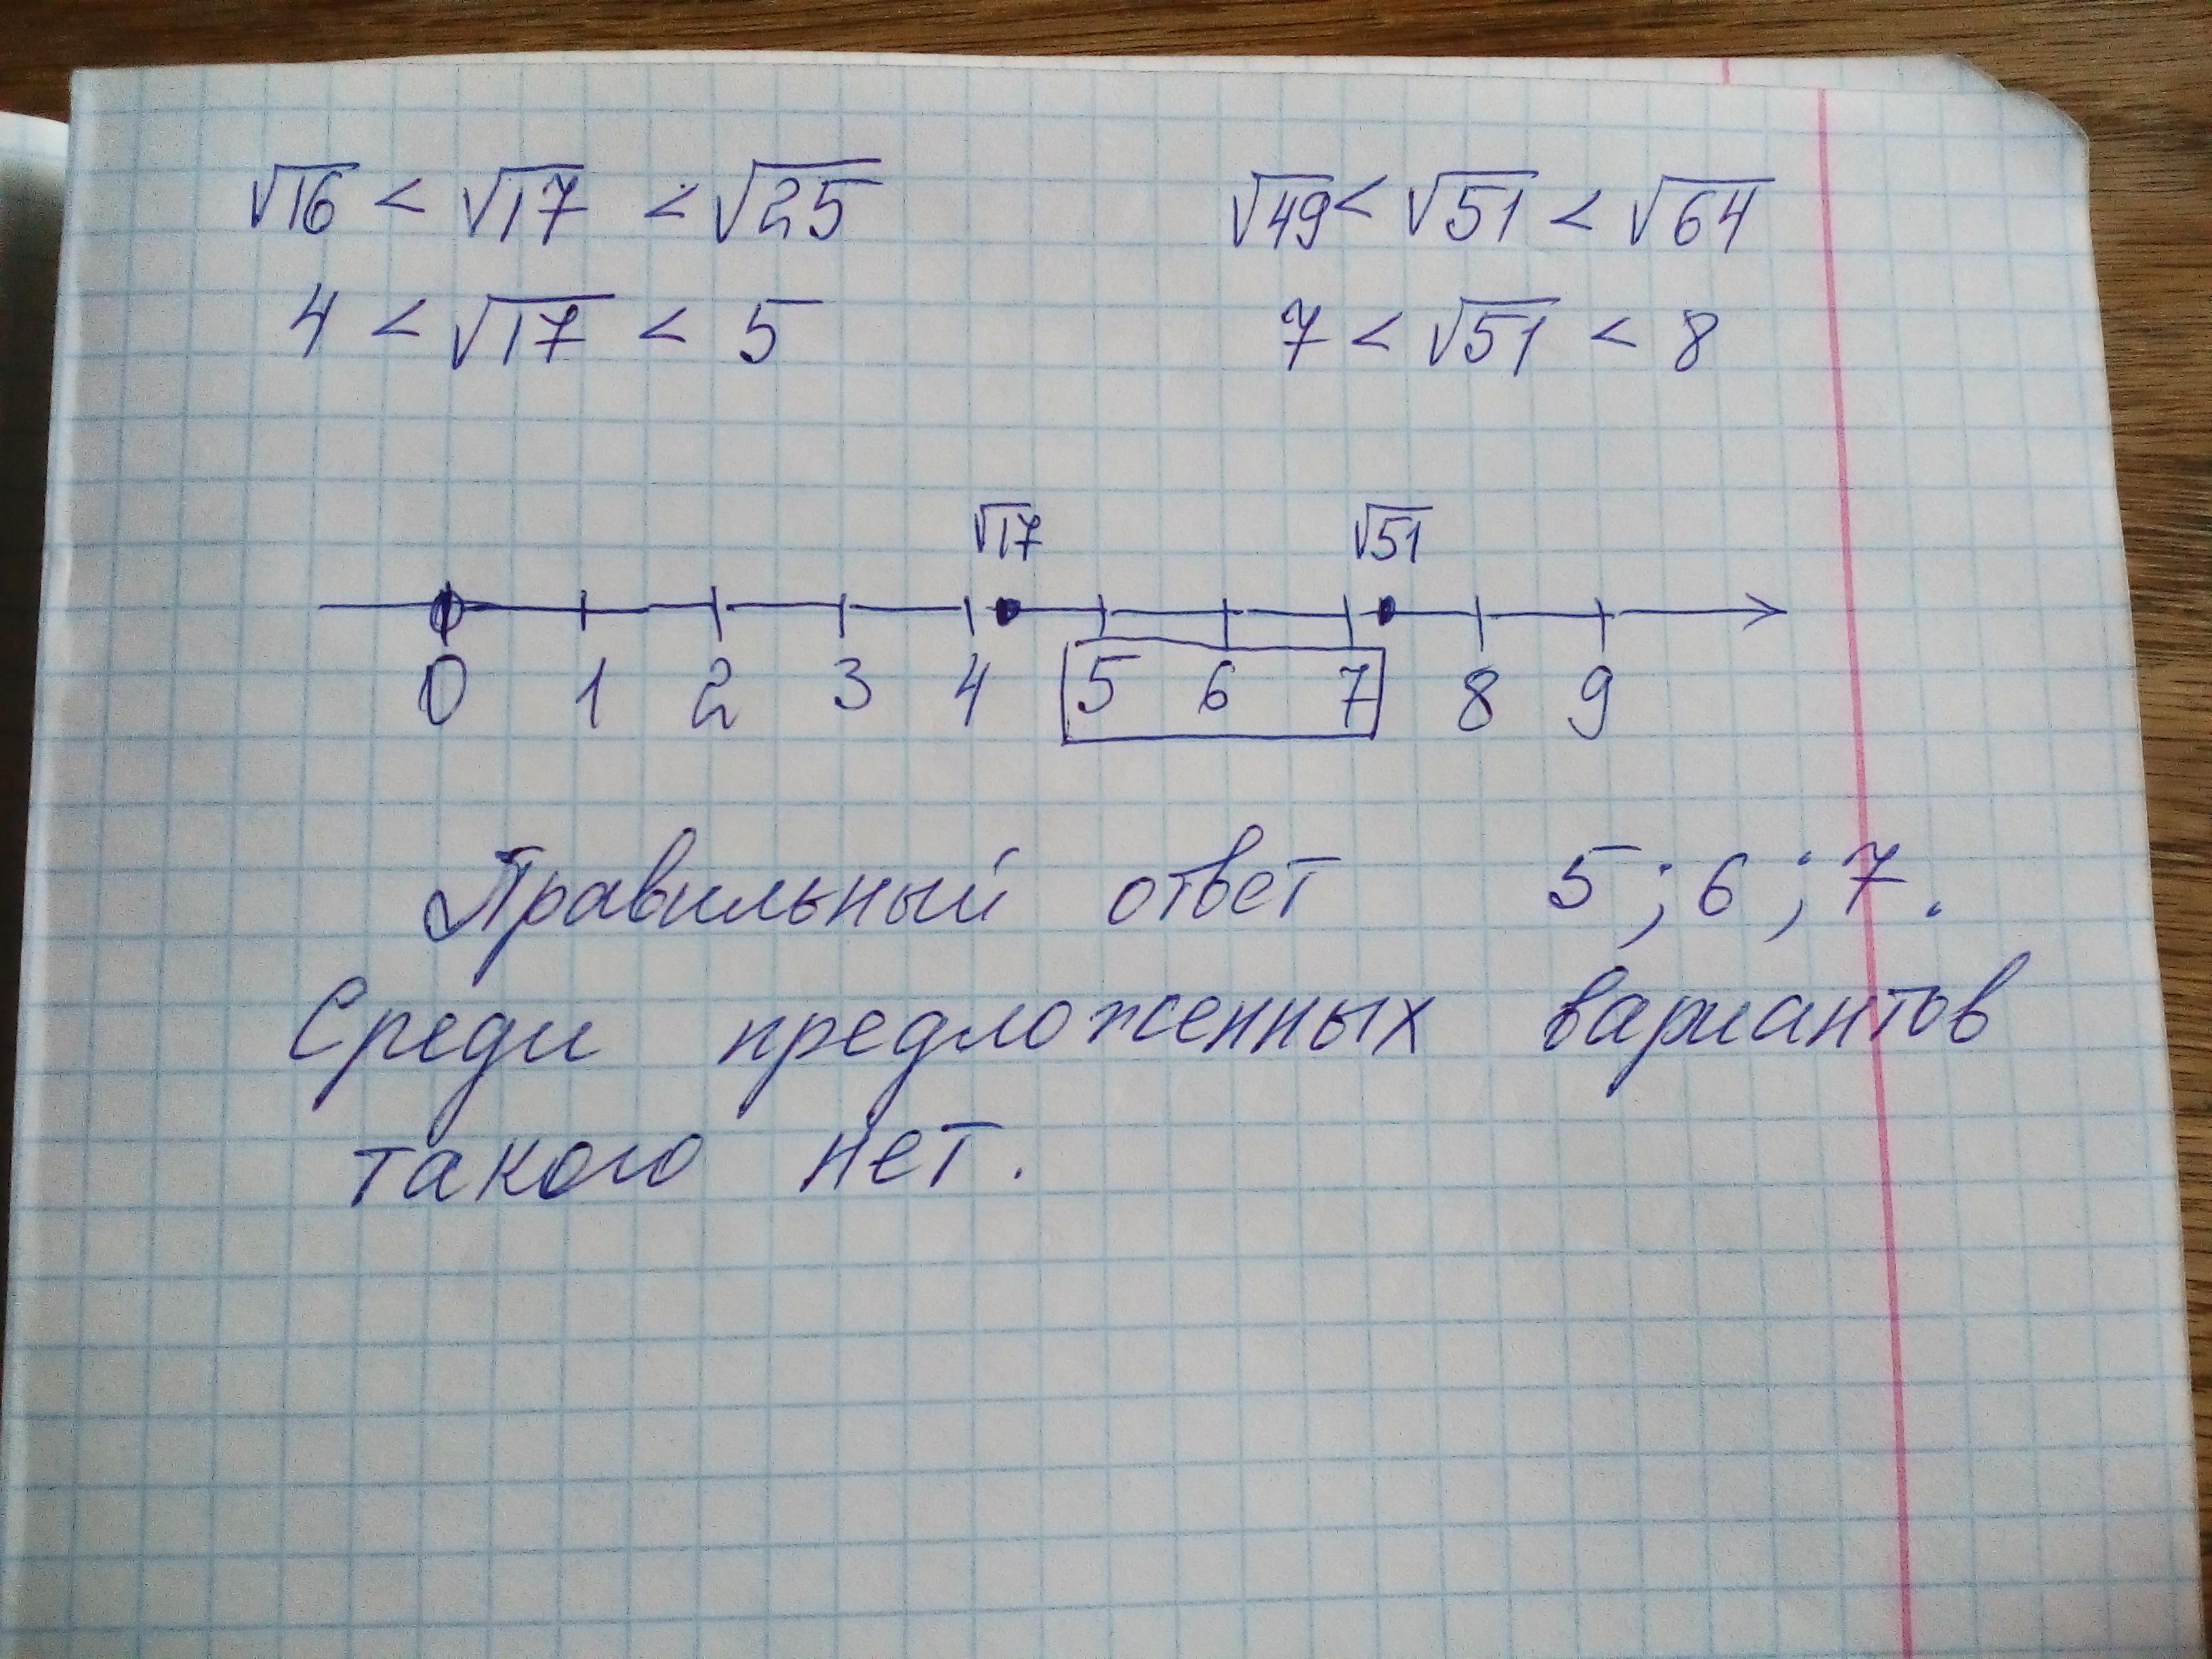 √16 < √17 < √25
√49 < √51 < √64
4 < √17 < 5
7 < √51 < 8
√17 √51
0 1 2 3 4 5 6 7 8 9
Правильный ответ 5; 6; 7.
Среди предложенных вариантов
такого нет.